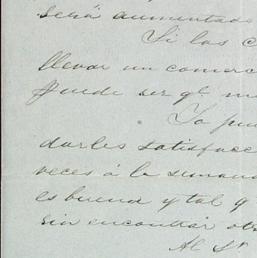 será aumentado
Si las c
llevar un comerc
puede ser qe m
Yo pue
darles satisfacc
veces á la semana
es buena y tal q
sin encontrar otr
Al Sr